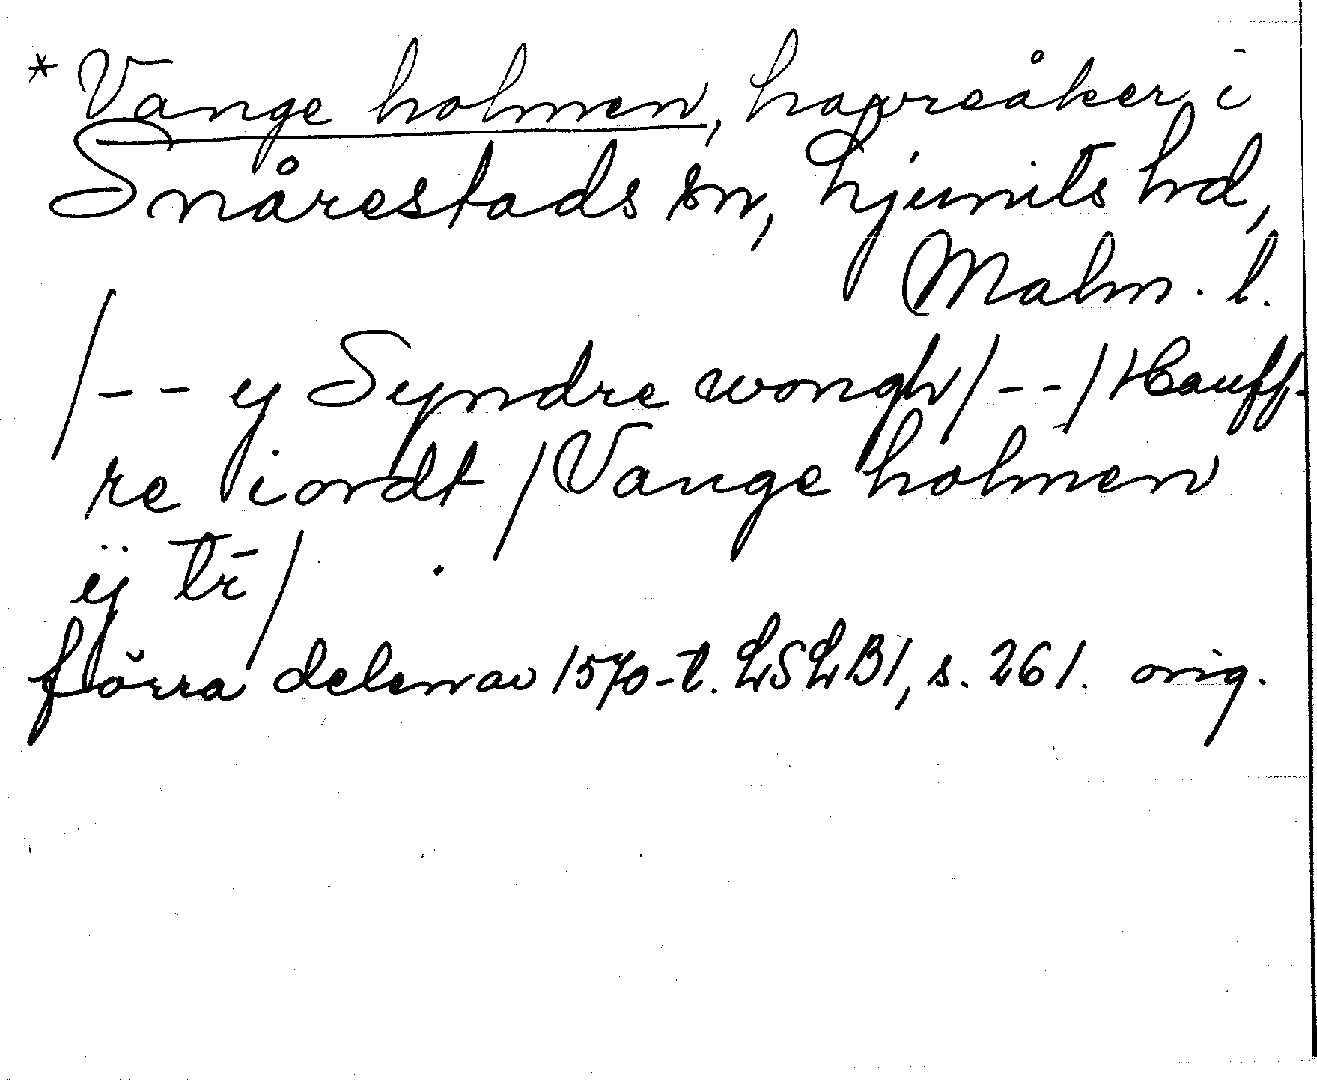 * Vange holmen, havreåker i
Snårestads sn, Ljunits hd,
Malm. l.
/-- y Syndre wongh/--/Hauff-
re iordt/Vange holmen
ÿ tr̄/
förra delen av 1570-t. LSLB1, s. 261. orig.